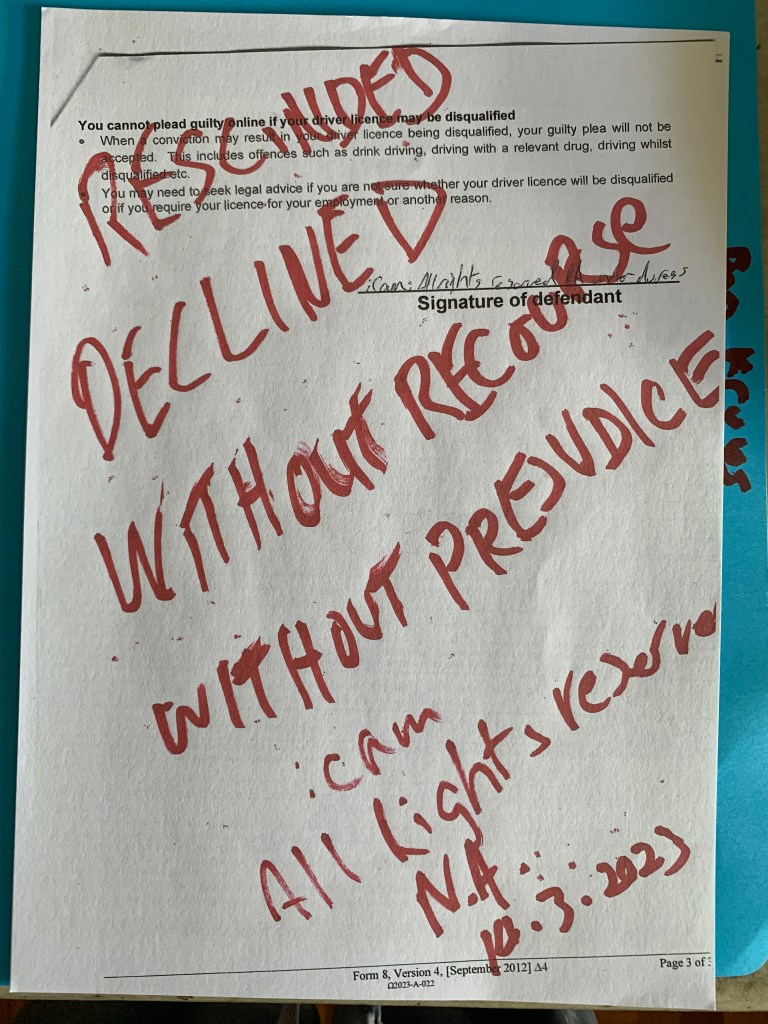 You cannot plead guilty online if your driver licence may be disqualified
• When a conviction may result in your driver licence being disqualified, your guilty plea will not be
accepted. This includes offences such as drink driving, driving with a relevant drug, driving whilst
disqualified etc.
• You may need to seek legal advice if you are not sure whether your driver licence will be disqualified
or if you require your licence for your employment or another reason.
:cam: All rights reserved NA under duress
Signature of defendant
RESCINDED
DECLINED
WITHOUT RECOURSE
WITHOUT PREJUDICE
:cam
All Rights reserve
N.A.:.
10.3.2023
Form 8, Version 4, [September 2012] Δ4
Page 3 of 3
Ω2023-A-022